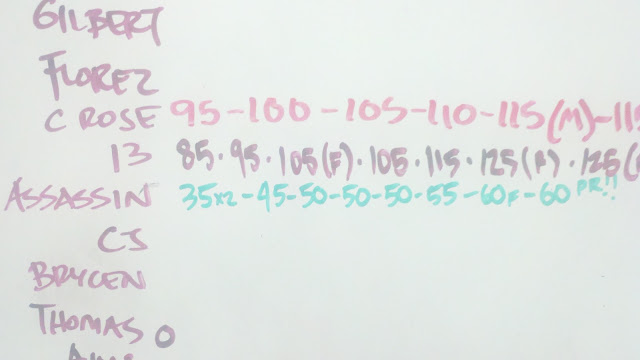 GILBERT
FLOREZ
C ROSE 95-100-105-110-115(M)-115
13 85·95·105(F)·105·115·125(F)·125(
ASSASSIN 35x2-45-50-50-50-55-60F-60 PR!!
CJ
BRYCEN
THOMAS O